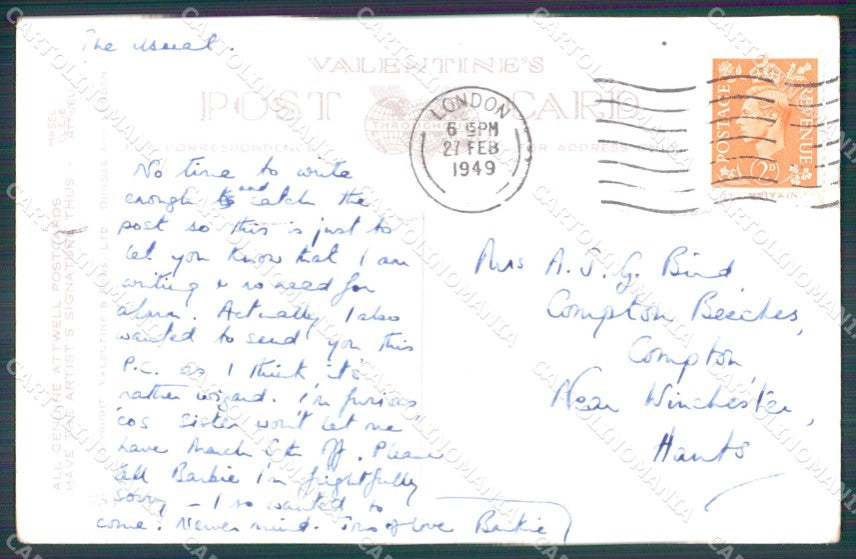 The Usual.
VALENTINE'S
POST CARD
THROUGH
CORRESPONDENCE
FOR ADDRESS
LONDON
6 15PM
27 FEB
1949
POSTAGE REVENUE
2D
No time to write
enough and catch the
post so this is just to
let you know that I am
writing & no need for
alarm. Actually I also
wanted to send you this
P.C. as I think it's
rather wizard. I'm furious
'cos Sister won't let me
have March 6th off. Please
tell Barbie I'm frightfully
sorry – I so wanted to
come. Never mind. Tons of love
Mrs A. J. G. Bird,
Compton Beeches,
Compton
Near Winchester,
Hants
ALL GENUINE ATTWELL POSTCARDS
HAVE THE ARTIST'S SIGNATURE THUS
MABEL
LUCIE
ATTWELL
COPYRIGHT VALENTINE & SONS LTD. DUNDEE AND LONDON.
CARTOLINOMANIA